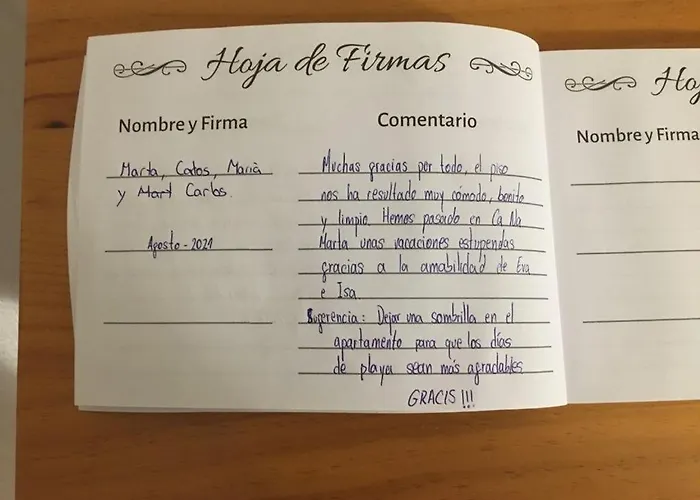 Hoja de Firmas
Nombre y Firma
Comentario
Marta, Carlos, Marià
y Martí Carlos.
Agosto - 2021
Muchas gracias por todo, el piso
nos ha resultado muy cómodo, bonito
y limpio. Hemos pasado en Ca Na
Marta unas vacaciones estupendas
gracias a la amabilidad de Eva
e Isa.
Sugerencia: Dejar una sombrilla en el
apartamento para que los días
de playa sean más agradables
GRACIS !!!
Ho
Nombre y Firma